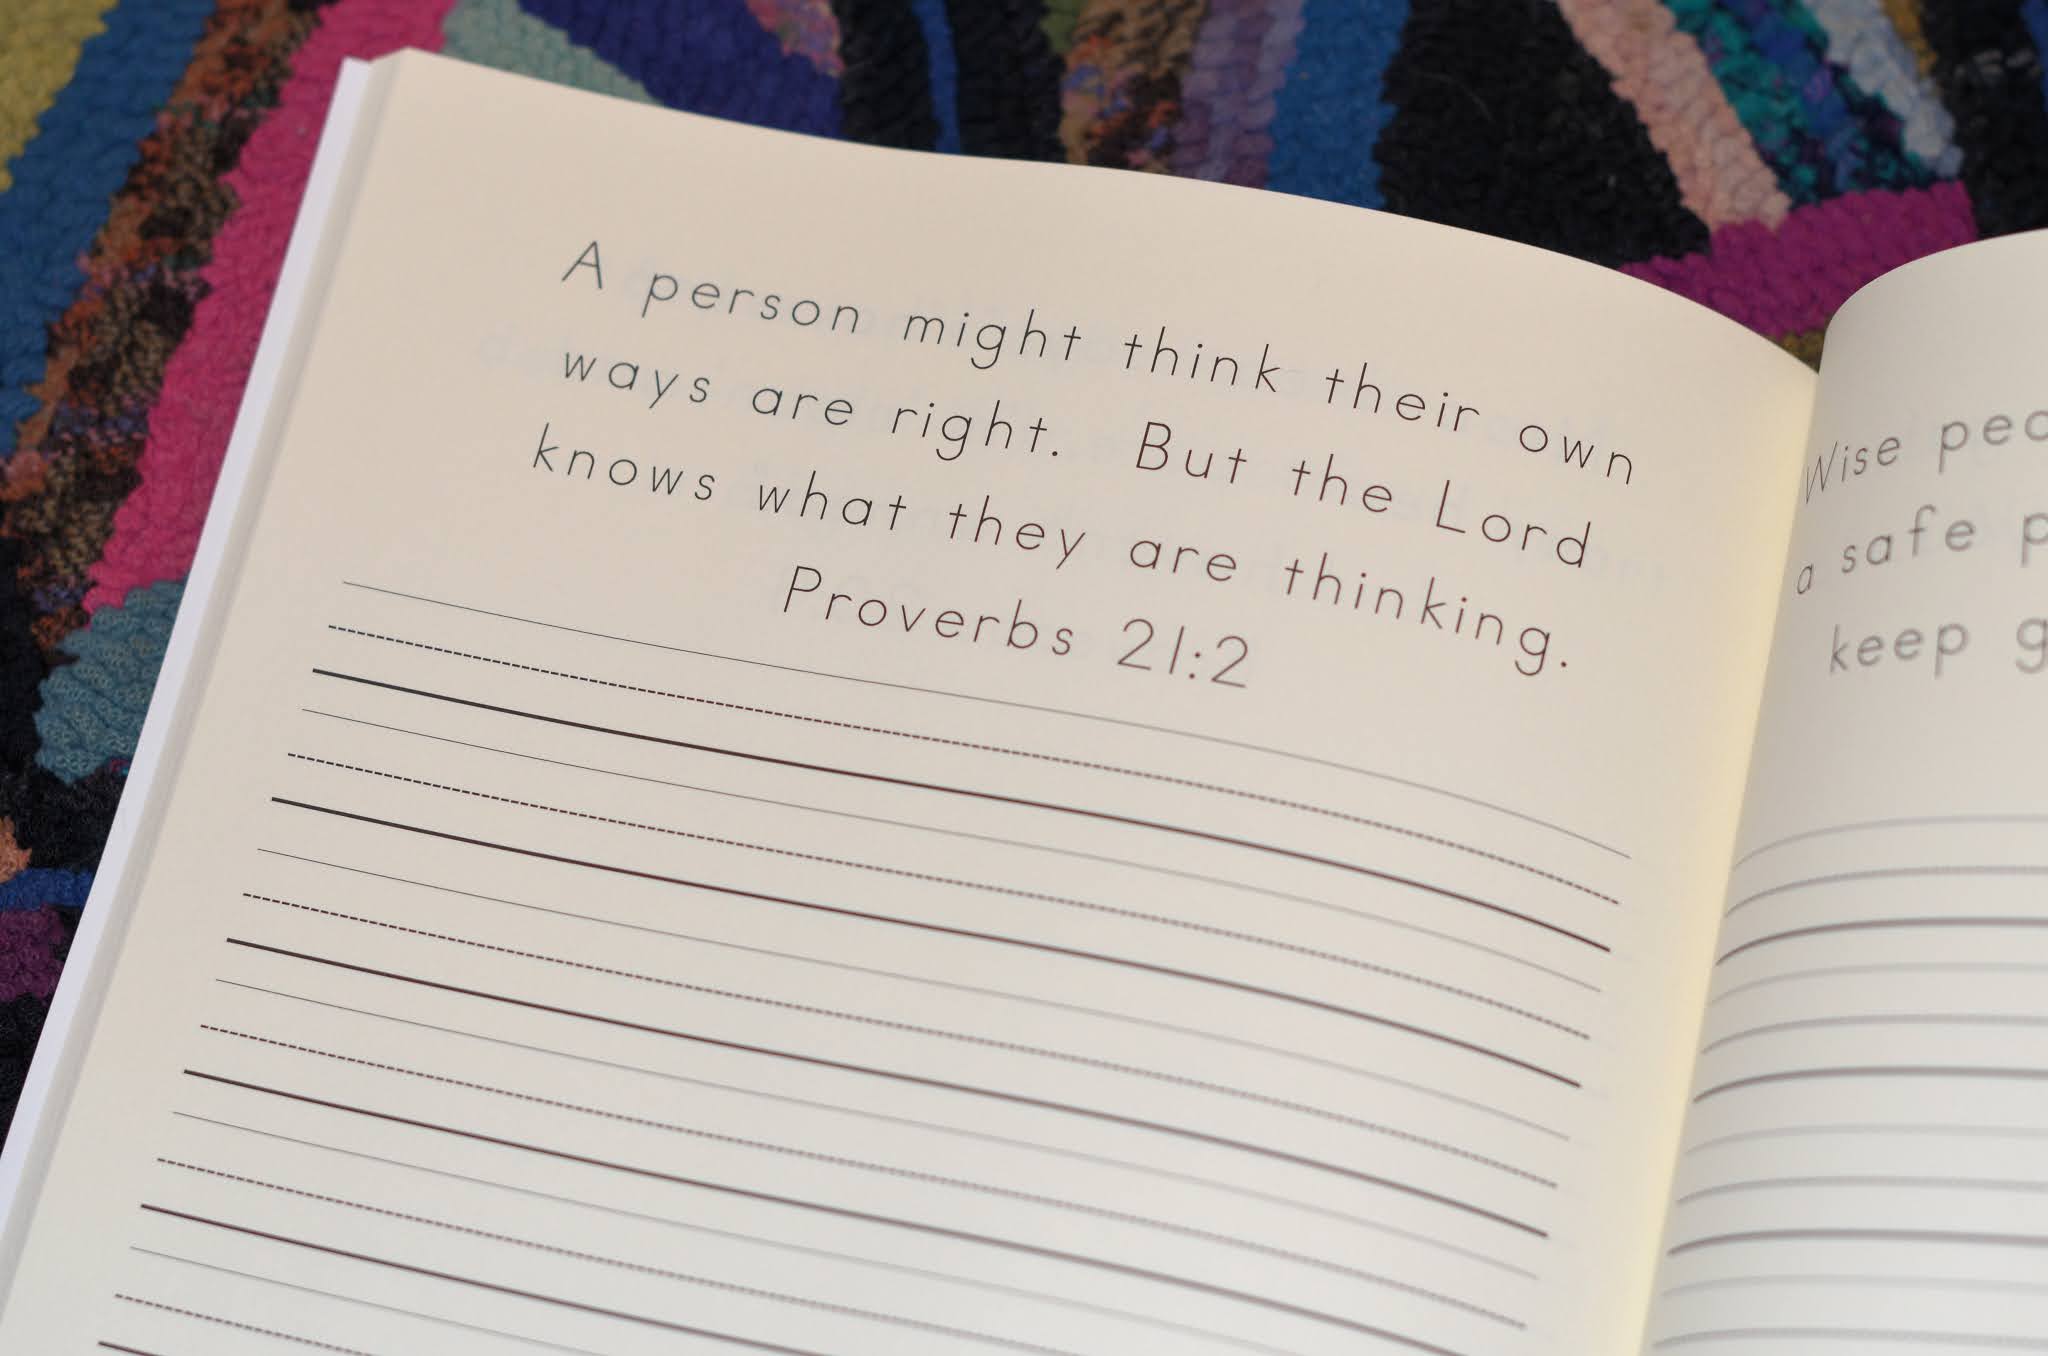 A person might think their own
ways are right. But the Lord
knows what they are thinking.
Proverbs 21:2
Wise
a safe
keep